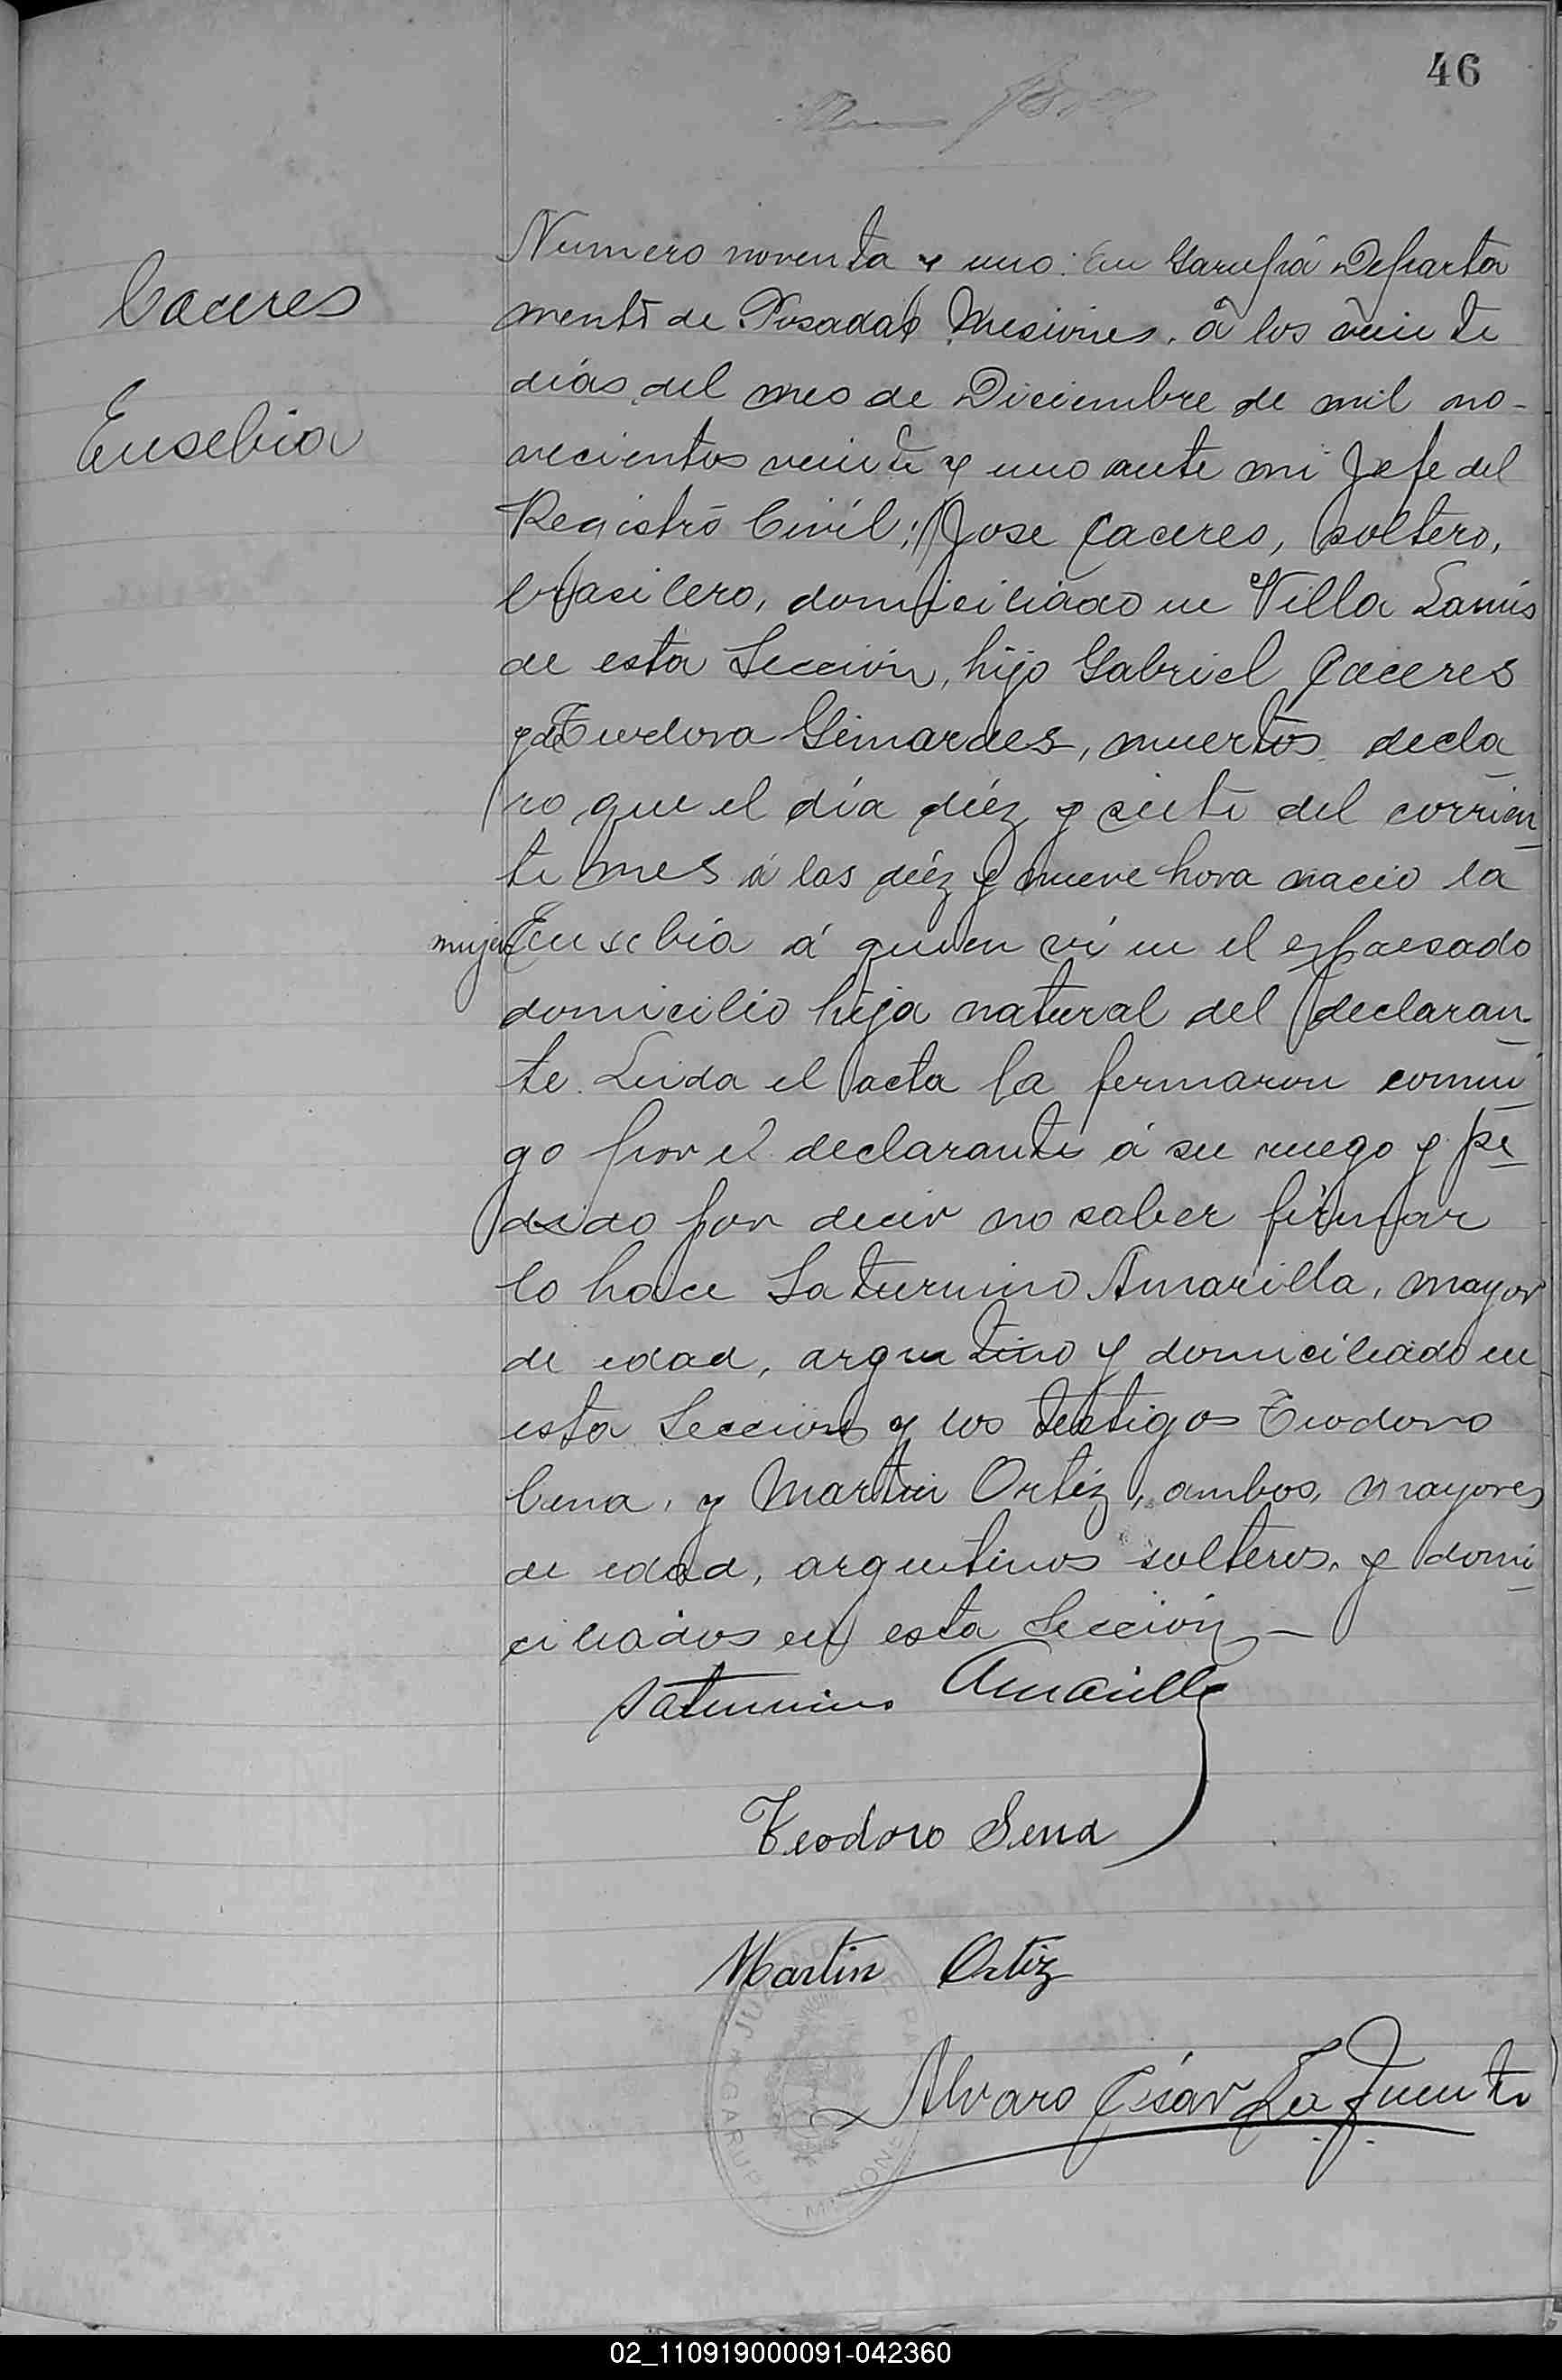 46
Caceres
Eusebia
Numero noventa y uno: En Garupá Departa
mento de Posadas Misiones, á los veinte
días del mes de Diciembre de mil no-
vecientos veinte y uno ante mi Jefe del
Registro Civil; Jose Caceres, soltero,
brasilero, domiciliado en Villa Lanús
de esta Sección, hijo Gabriel Caceres
y de Teodora Gimardes, muertos decla
ro que el día diéz y siete del corrien
te mes á las diéz y nueve hora nacio la
mujer Eusebia á quien ví en el espresado
domicilio hija natural del declaran
te. Leida el acta la firmaron conmi
go por el declarante á su ruego y pe
dido por decir no saber firmar
lo hace Saturnino Amarilla, mayor
de edad, argentino y domiciliado en
esta Seccion y los testigos Teodoro
Cena, y Martin Ortiz, ambos, mayores
de edad, argentinos solteros, y domi
ciliados en esta Sección
Saturnino Amarilla
Teodoro Sena
Martin Ortiz
Alvaro César La Fuente
GARUPA
02_110919000091-042360